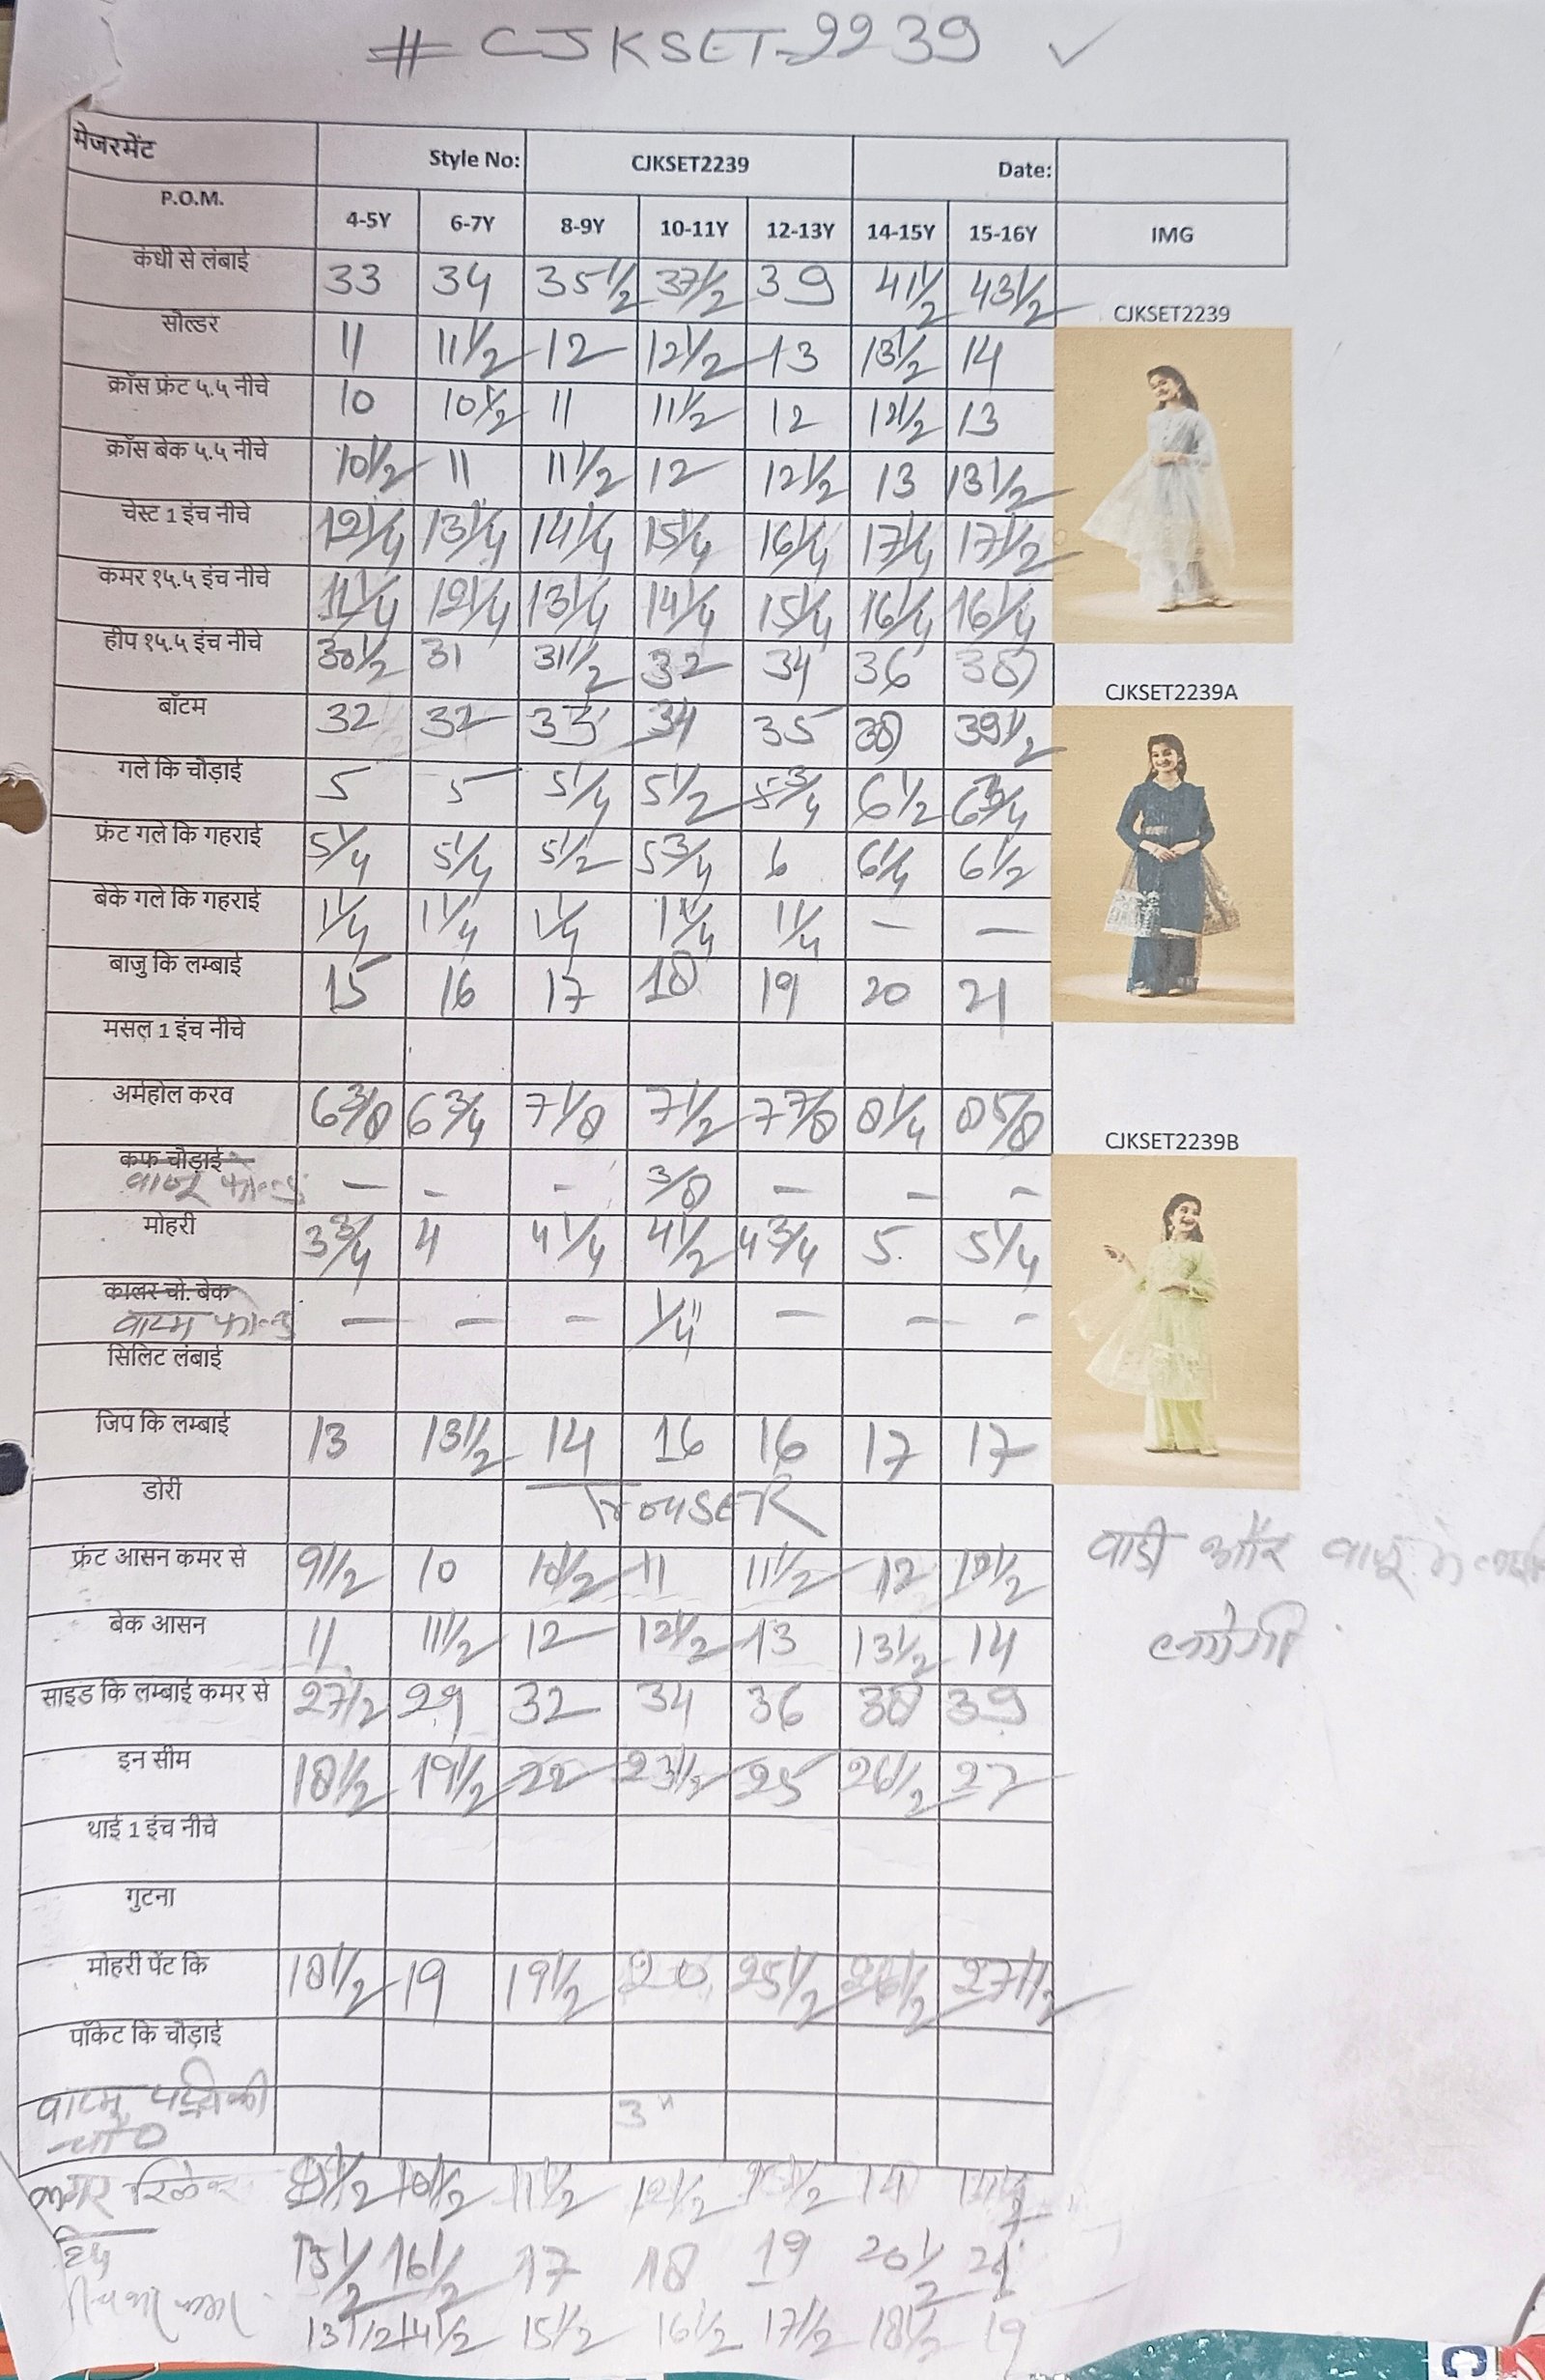 # CJKSET-2239 ✓
मेजरमेंट Style No: CJKSET2239 Date:
P.O.M. 4-5Y 6-7Y 8-9Y 10-11Y 12-13Y 14-15Y 15-16Y IMG
कंधी से लंबाई 33 34 35 1/2 37 1/2 39 41 1/2 43 1/2
CJKSET2239
सोल्डर 11 11 1/2 12 12 1/2 13 13 1/2 14
क्रॉस फ्रंट ५.५ नीचे 10 10 1/2 11 11 1/2 12 12 1/2 13
क्रॉस बेक ५.५ नीचे 10 1/2 11 11 1/2 12 12 1/2 13 13 1/2
चेस्ट 1 इंच नीचे 12 1/4 13 1/4 14 1/4 15 1/4 16 1/4 17 1/4 17 1/2
कमर १५.५ इंच नीचे 11 1/4 12 1/4 13 1/4 14 1/4 15 1/4 16 1/4 16 1/4
हीप १५.५ इंच नीचे 30 1/2 31 31 1/2 32 34 36 38
CJKSET2239A
बॉटम 32 32 33 34 35 38 39 1/2
गले कि चौड़ाई 5 5 5 1/4 5 1/2 5 3/4 6 1/2 6 3/4
फ्रंट गले कि गहराई 5 1/4 5 1/4 5 1/2 5 3/4 6 6 1/4 6 1/2
बेके गले कि गहराई 1 1/4 1 1/4 1 1/4 1 1/4 1 1/4 - -
बाजु कि लम्बाई 15 16 17 18 19 20 21
मसल 1 इंच नीचे
अर्महोल करव 6 3/8 6 3/4 7 1/8 7 1/2 7 7/8 8 1/4 8 5/8
CJKSET2239B
कफ चौड़ाई
बाजू फोल्ड - - - 3/8 - - -
मोहरी 3 3/4 4 4 1/4 4 1/2 4 3/4 5 5 1/4
कालर चो. बेक
वाटम फोल्ड - - - 1/4" - - -
सिलिट लंबाई
जिप कि लम्बाई 13 13 1/2 14 16 16 17 17
डोरी TrouSER
फ्रंट आसन कमर से 9 1/2 10 10 1/2 11 11 1/2 12 12 1/2
वाडी और वाजू मे
लगेगी
बेक आसन 11 11 1/2 12 12 1/2 13 13 1/2 14
साइड कि लम्बाई कमर से 27 1/2 29 32 34 36 38 39
इन सीम 18 1/2 19 1/2 22 23 1/2 25 26 1/2 27
थाई 1 इंच नीचे
गुटना
मोहरी पेंट कि 18 1/2 19 19 1/2 20 25 1/2 26 1/2 27 1/2
पॉकेट कि चौड़ाई
वाटम पट्टीकी 3"
चौ०
कमर रिलेक्स 10 1/2 11 1/2 12 1/2 14
हिप 15 1/2 16 1/2 17 18 19 20 1/2 21
13 1/2 14 1/2 15 1/2 16 1/2 17 1/2 18 1/2 19